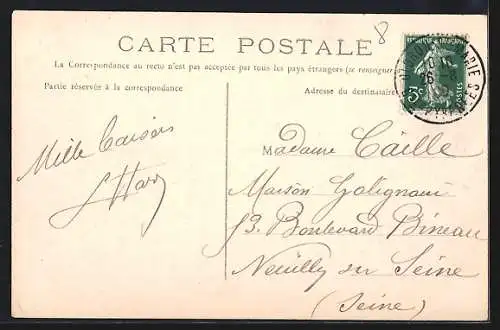 8
CARTE POSTALE
La Correspondance au recto n'est pas acceptée par tous les pays étrangers (se renseigner
Partie réservée à la correspondance
Adresse du destinataire
RÉPUBLIQUE FRANÇAISE
5c
POSTES
Mille baisers
Madame Caille
Maison Galignani
Boulevard Bineau
Neuilly sur Seine
(Seine)